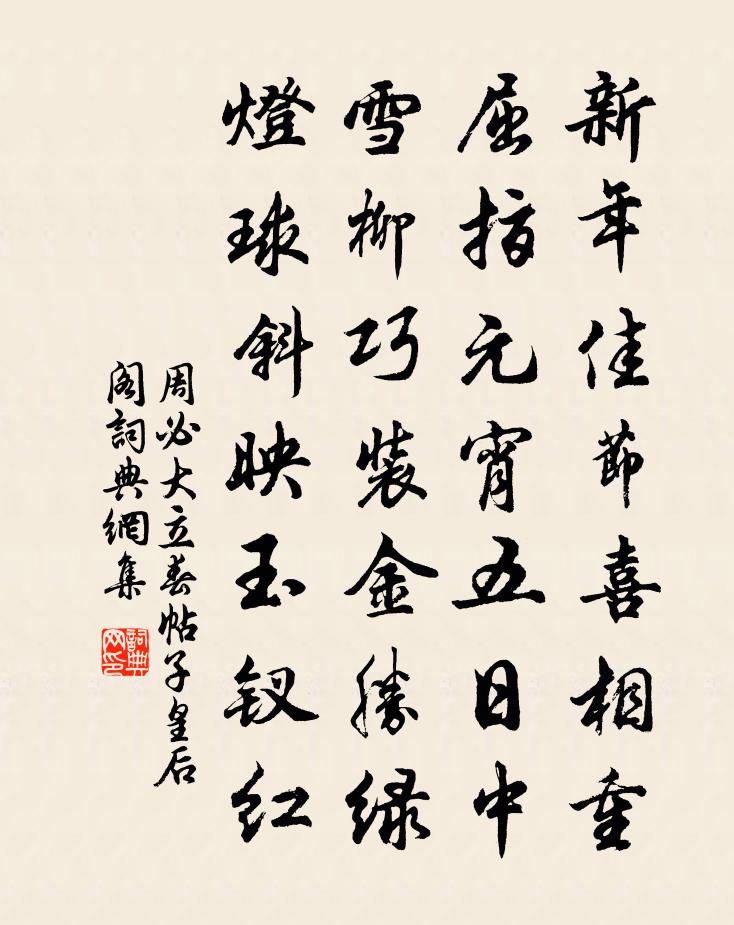 新年佳節喜相重
屈指元宵五日中
雪柳巧裝金勝緑
燈球斜映玉釵紅
周必大立春帖子皇后
阁詞典網集
詞典网印